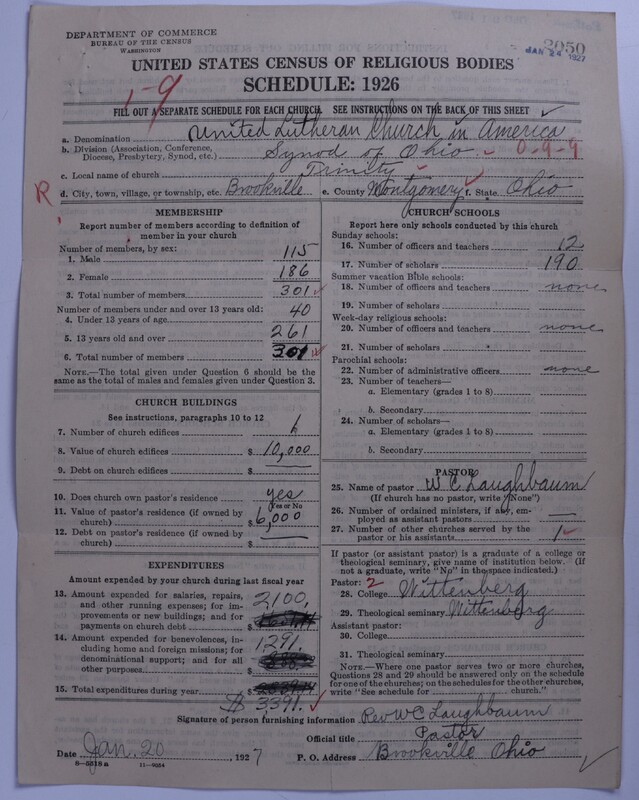 DEPARTMENT OF COMMERCE
BUREAU OF THE CENSUS
WASHINGTON
2050
JAN 24 1927
UNITED STATES CENSUS OF RELIGIOUS BODIES
SCHEDULE: 1926
1-9
FILL OUT A SEPARATE SCHEDULE FOR EACH CHURCH. SEE INSTRUCTIONS ON THE BACK OF THIS SHEET
a. Denomination United Lutheran Church in America
b. Division (Association, Conference, Diocese, Presbytery, Synod, etc.) Synod of Ohio 0-9-9
c. Local name of church Trinity
R d. City, town, village, or township, etc. Brookville e. County Montgomery f. State Ohio
MEMBERSHIP
Report number of members according to definition of member in your church
Number of members, by sex:
1. Male 115
2. Female 186
3. Total number of members 301
Number of members under and over 13 years old:
4. Under 13 years of age 40
5. 13 years old and over 261
6. Total number of members 301
NOTE.—The total given under Question 6 should be the same as the total of males and females given under Question 3.
CHURCH BUILDINGS
See instructions, paragraphs 10 to 12
7. Number of church edifices 1
8. Value of church edifices $ 10,000
9. Debt on church edifices $ —
10. Does church own pastor's residence? yes
Yes or No
11. Value of pastor's residence (if owned by church) $ 6,000
12. Debt on pastor's residence (if owned by church) $ —
EXPENDITURES
Amount expended by your church during last fiscal year
13. Amount expended for salaries, repairs, and other running expenses; for improvements or new buildings; and for payments on church debt $ 2100.
14. Amount expended for benevolences, including home and foreign missions; for denominational support; and for all other purposes $ 1,291.
15. Total expenditures during year $
$ 3391.
CHURCH SCHOOLS
Report here only schools conducted by this church
Sunday schools:
16. Number of officers and teachers 12
17. Number of scholars 190
Summer vacation Bible schools:
18. Number of officers and teachers none
19. Number of scholars
Week-day religious schools:
20. Number of officers and teachers none
21. Number of scholars
Parochial schools:
22. Number of administrative officers none
23. Number of teachers—
a. Elementary (grades 1 to 8)
b. Secondary
24. Number of scholars—
a. Elementary (grades 1 to 8)
b. Secondary
PASTOR
25. Name of pastor W C Laughbaum
(If church has no pastor, write "None")
26. Number of ordained ministers, if any, employed as assistant pastors —
27. Number of other churches served by the pastor or his assistants 1
If pastor (or assistant pastor) is a graduate of a college or theological seminary, give name of institution below. (If not a graduate, write "No" in the space indicated.)
Pastor: 2
28. College Wittenberg
29. Theological seminary Wittenberg
Assistant pastor:
30. College
31. Theological seminary
NOTE.—Where one pastor serves two or more churches, Questions 28 and 29 should be answered only on the schedule for one of the churches; on the schedules for the other churches, write "See schedule for ______ church."
Signature of person furnishing information Rev W C Laughbaum
Official title Pastor
Date Jan. 20, 1927 P. O. Address Brookville Ohio
8-5318a 11-9354